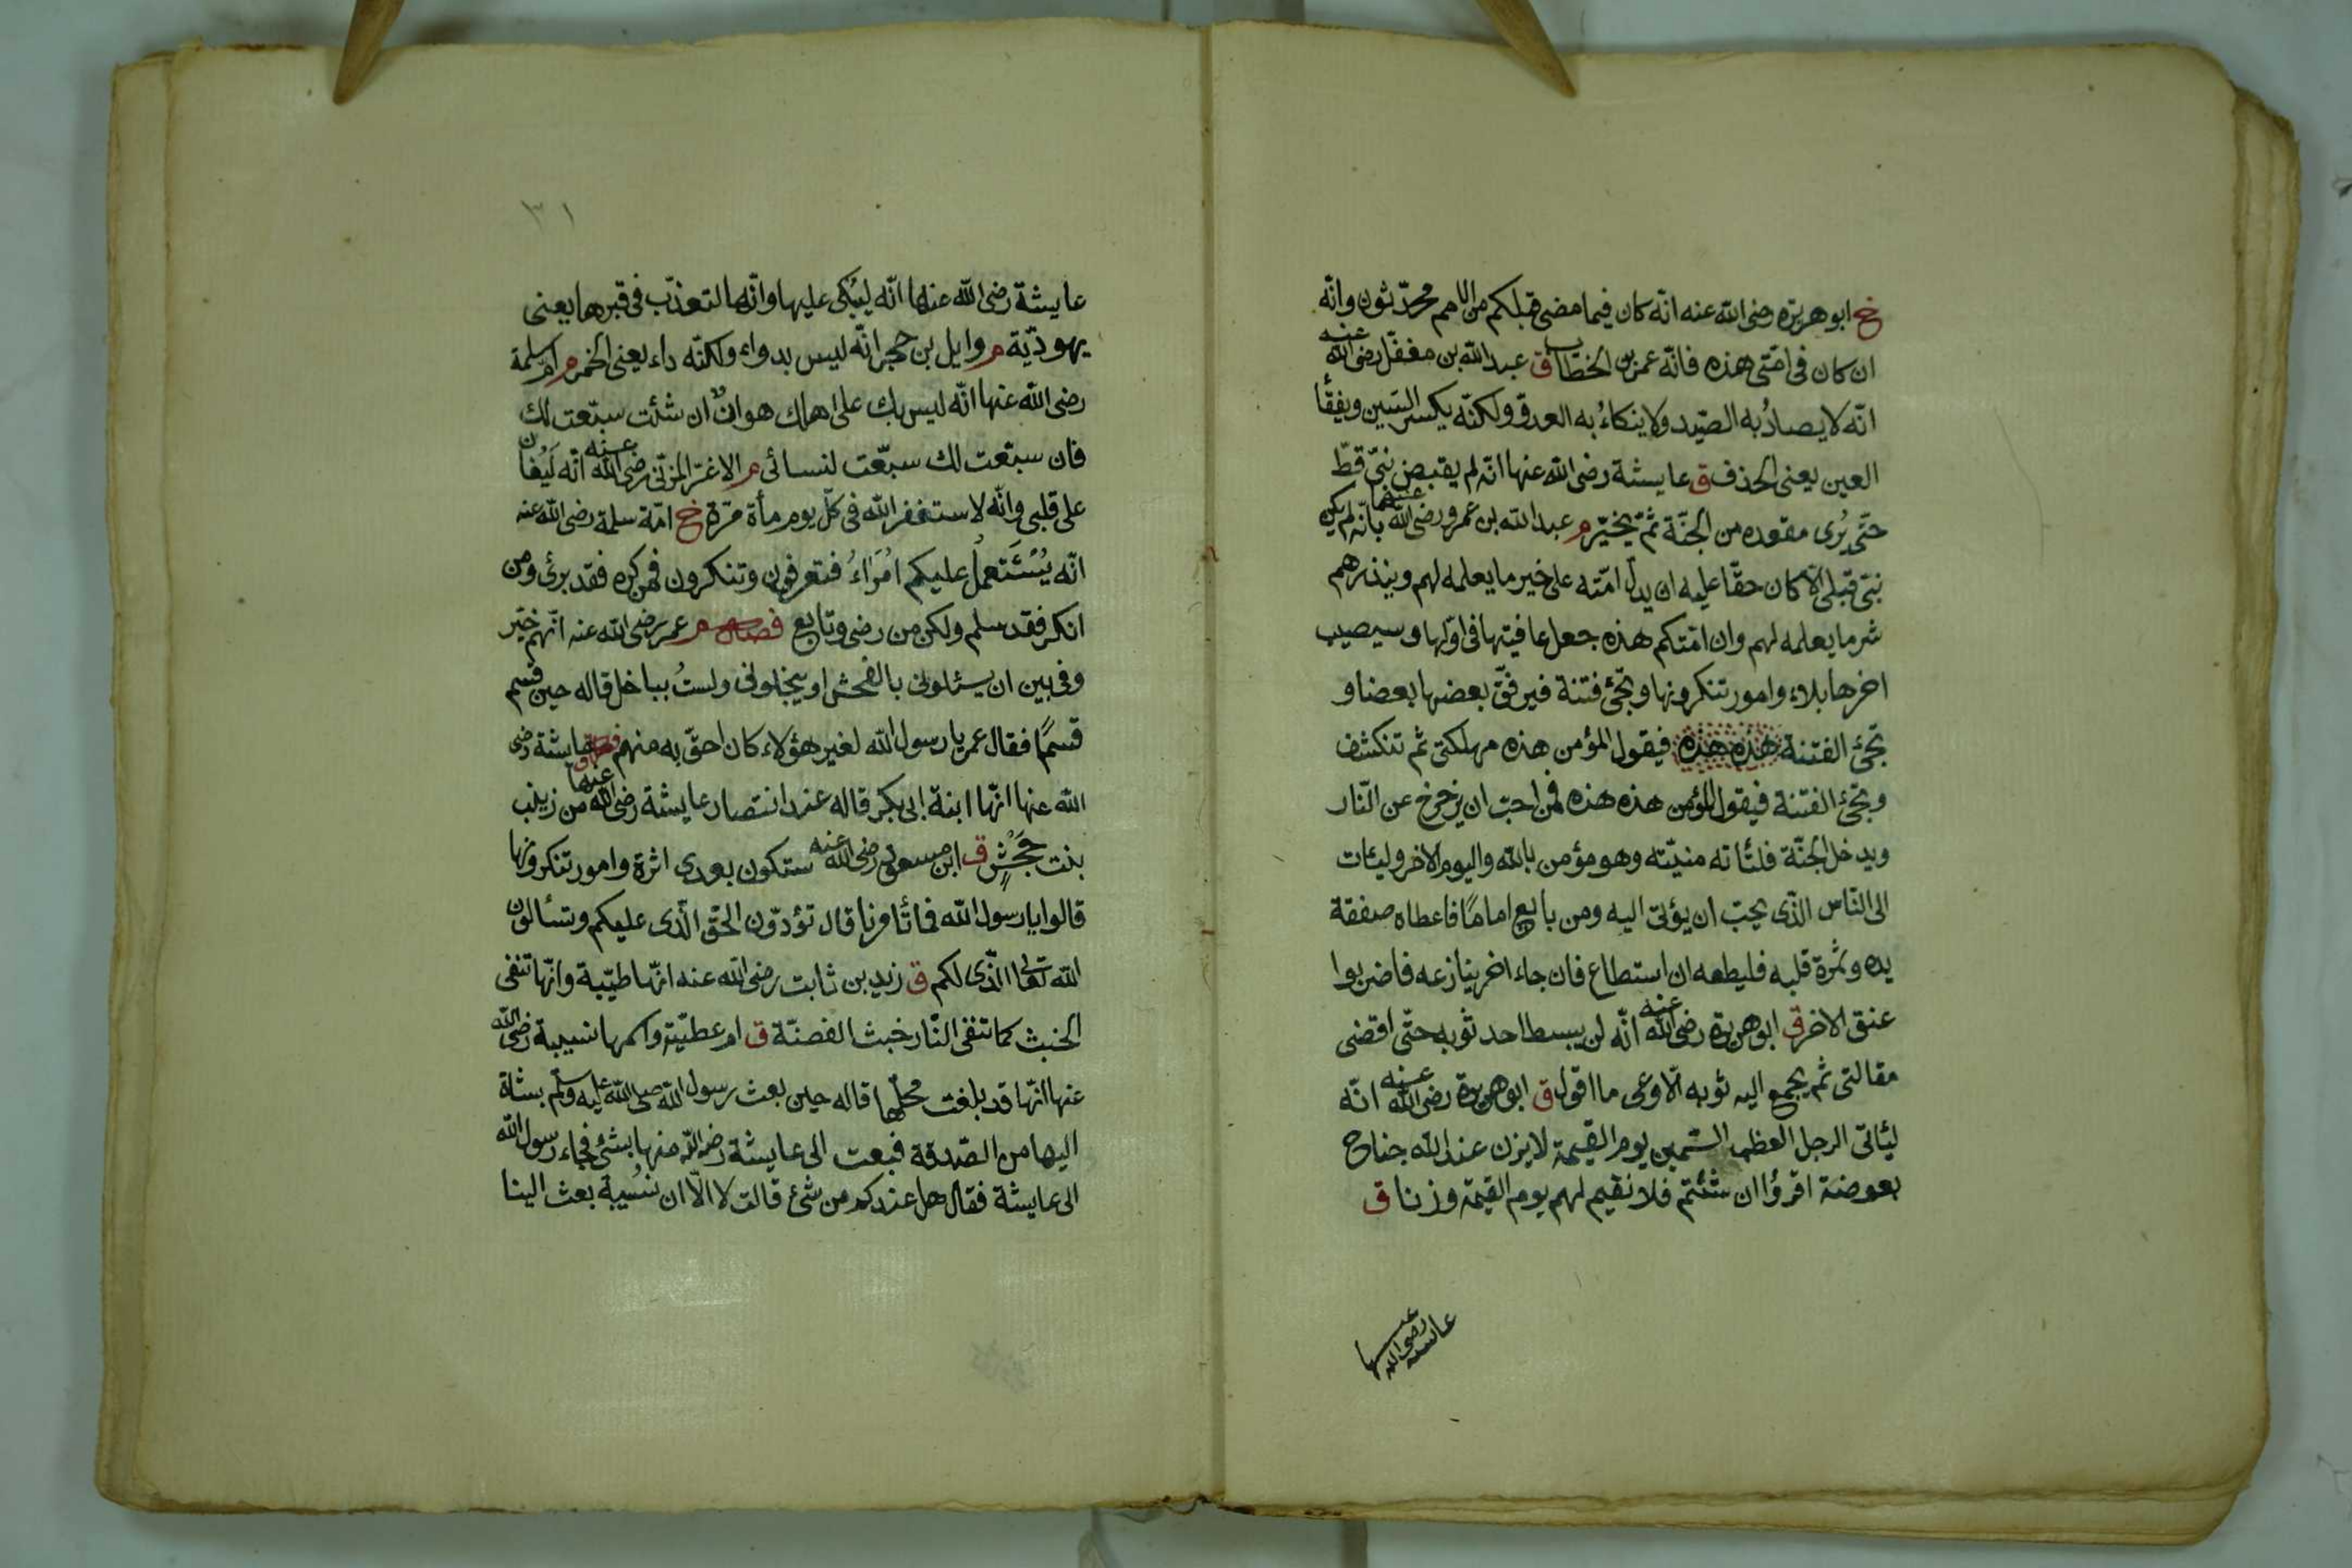 خ ابو هريرة رضى الله عنه انّه كان فيما مضى قبلكم من الامم محدّثون وانّه
ان كان فى امّتى هذه فانّه عمر بن الخطّاب ق عبد الله بن مغفّل رضى الله عنه
انّه لا يصادُ به الصّيد ولا ينكاءُ به العدوّ ولكنّه يكسر السّين ويفقأ
العين يعنى الخذف ق عايشة رضى الله عنها انّه لم يقبض نبىّ قطّ
حتّى يُرى مقعده من الجنّة ثمّ يخيّر م عبد الله بن عمرو رضى الله عنهما بانّه لم يكن
نبىّ قبلى الّا كان حقّا عليه ان يدلّ امّته على خير ما يعلمه لهم وينذرهم
شر ما يعلمه لهم وان امّتكم هذه جعل عافيتها فى اوّلها وسيصيب
اخرها بلاء وامور تنكرونها وتجئ فتنة فيرقّق بعضها بعضا و
تجئ الفتنة هذه هذه فيقول المؤمن هذه مهلكتى ثم تنكشف
وتجئ الفتنة فيقول المؤمن هذه هذه فمن احبّ ان يزحزح عن النّار
ويدخل الجنّة فلتأته منيّته وهو مؤمن بالله واليوم الاخر وليئات
الى النّاس الذّى يحبّ ان يؤتى اليه ومن بايع امامًا فاعطاه صفقة
يده وثمرة قلبه فليطعه ان استطاع فان جاء اخر ينازعه فاضربوا
عنق الاخر ق ابو هريرة رضى الله عنه انّه لن يبسط احد ثوبه حتّى اقضى
مقالتى ثم يجمع اليه ثوبه الّا وعى ما اقول ق ابو هريرة رضى الله عنه انّه
ليئاتى الرجل العظيم السّمين يوم القيمة لا يزن عند الله جناح
بعوضة اقرؤا ان شئتم فلا نقيم لهم يوم القيمة وزنا ق
عايشه رضى الله عنها
٣١
عايشة رضى الله عنها انّه ليبكى عليها وانّها لتعذّب فى قبرها يعنى
يهوديّة م وايل بن حجر انّه ليس بدواء ولكنّه داء يعنى الخمر م ام سلمة
رضى الله عنها انّه ليس بك على اهلك هوانٌ ان شئت سبّعت لك
فان سبّعت لك سبّعت لنسائى م الاغرّ المزنى رضى الله عنه انّه لَيُغان
على قلبى وانّه لاستغفر الله فى كلّ يوم مأة مرّة خ امّة سلمة رضى الله عنه
انّه يُسْتَعملُ عليكم امُرَاءُ فتعرفون وتنكرون فمن كره فقد برئ ومن
انكر فقد سلم ولكن من رضى وتابع فصل م عمر رضى الله عنه انّهم خيّر
وفى بين ان يسئلونى بالفحش او يبخلونى ولستُ بباخل قاله حين قسم
قسمًا فقال عمر يا رسول الله لغير هؤلاء كان احقّ به منهم ق عايشة رضى
الله عنها انّها ابنة ابى بكر قاله عند انتصار عايشة رضى الله عنها من زينب
بنت جَحْشٍ ق ابن مسعود رضى الله عنه ستكون بعدى اثرة وامور تنكرونها
قالوا يا رسول الله فما تأمرنا قال تؤدّون الحقّ الّذى عليكم وتسئالون
الله تعالى الّذى لكم ق زيد بن ثابت رضى الله عنه انّها طيّبة وانّها تنفى
الخبث كما تنفى النّار خبث الفضّة ق ام عطيّة واسمها نسيبة رضى الله
عنها انّها قد بلغت محلّها قاله حين بعث رسول الله صلى الله عليه وسلّم بشاة
اليها من الصّدقة فبعت الى عايشة رضى الله منها بشئ فجاء رسول الله
الى عايشة فقال هل عندكم من شئ قالت لا الّا ان نسُيبة بعث الينا